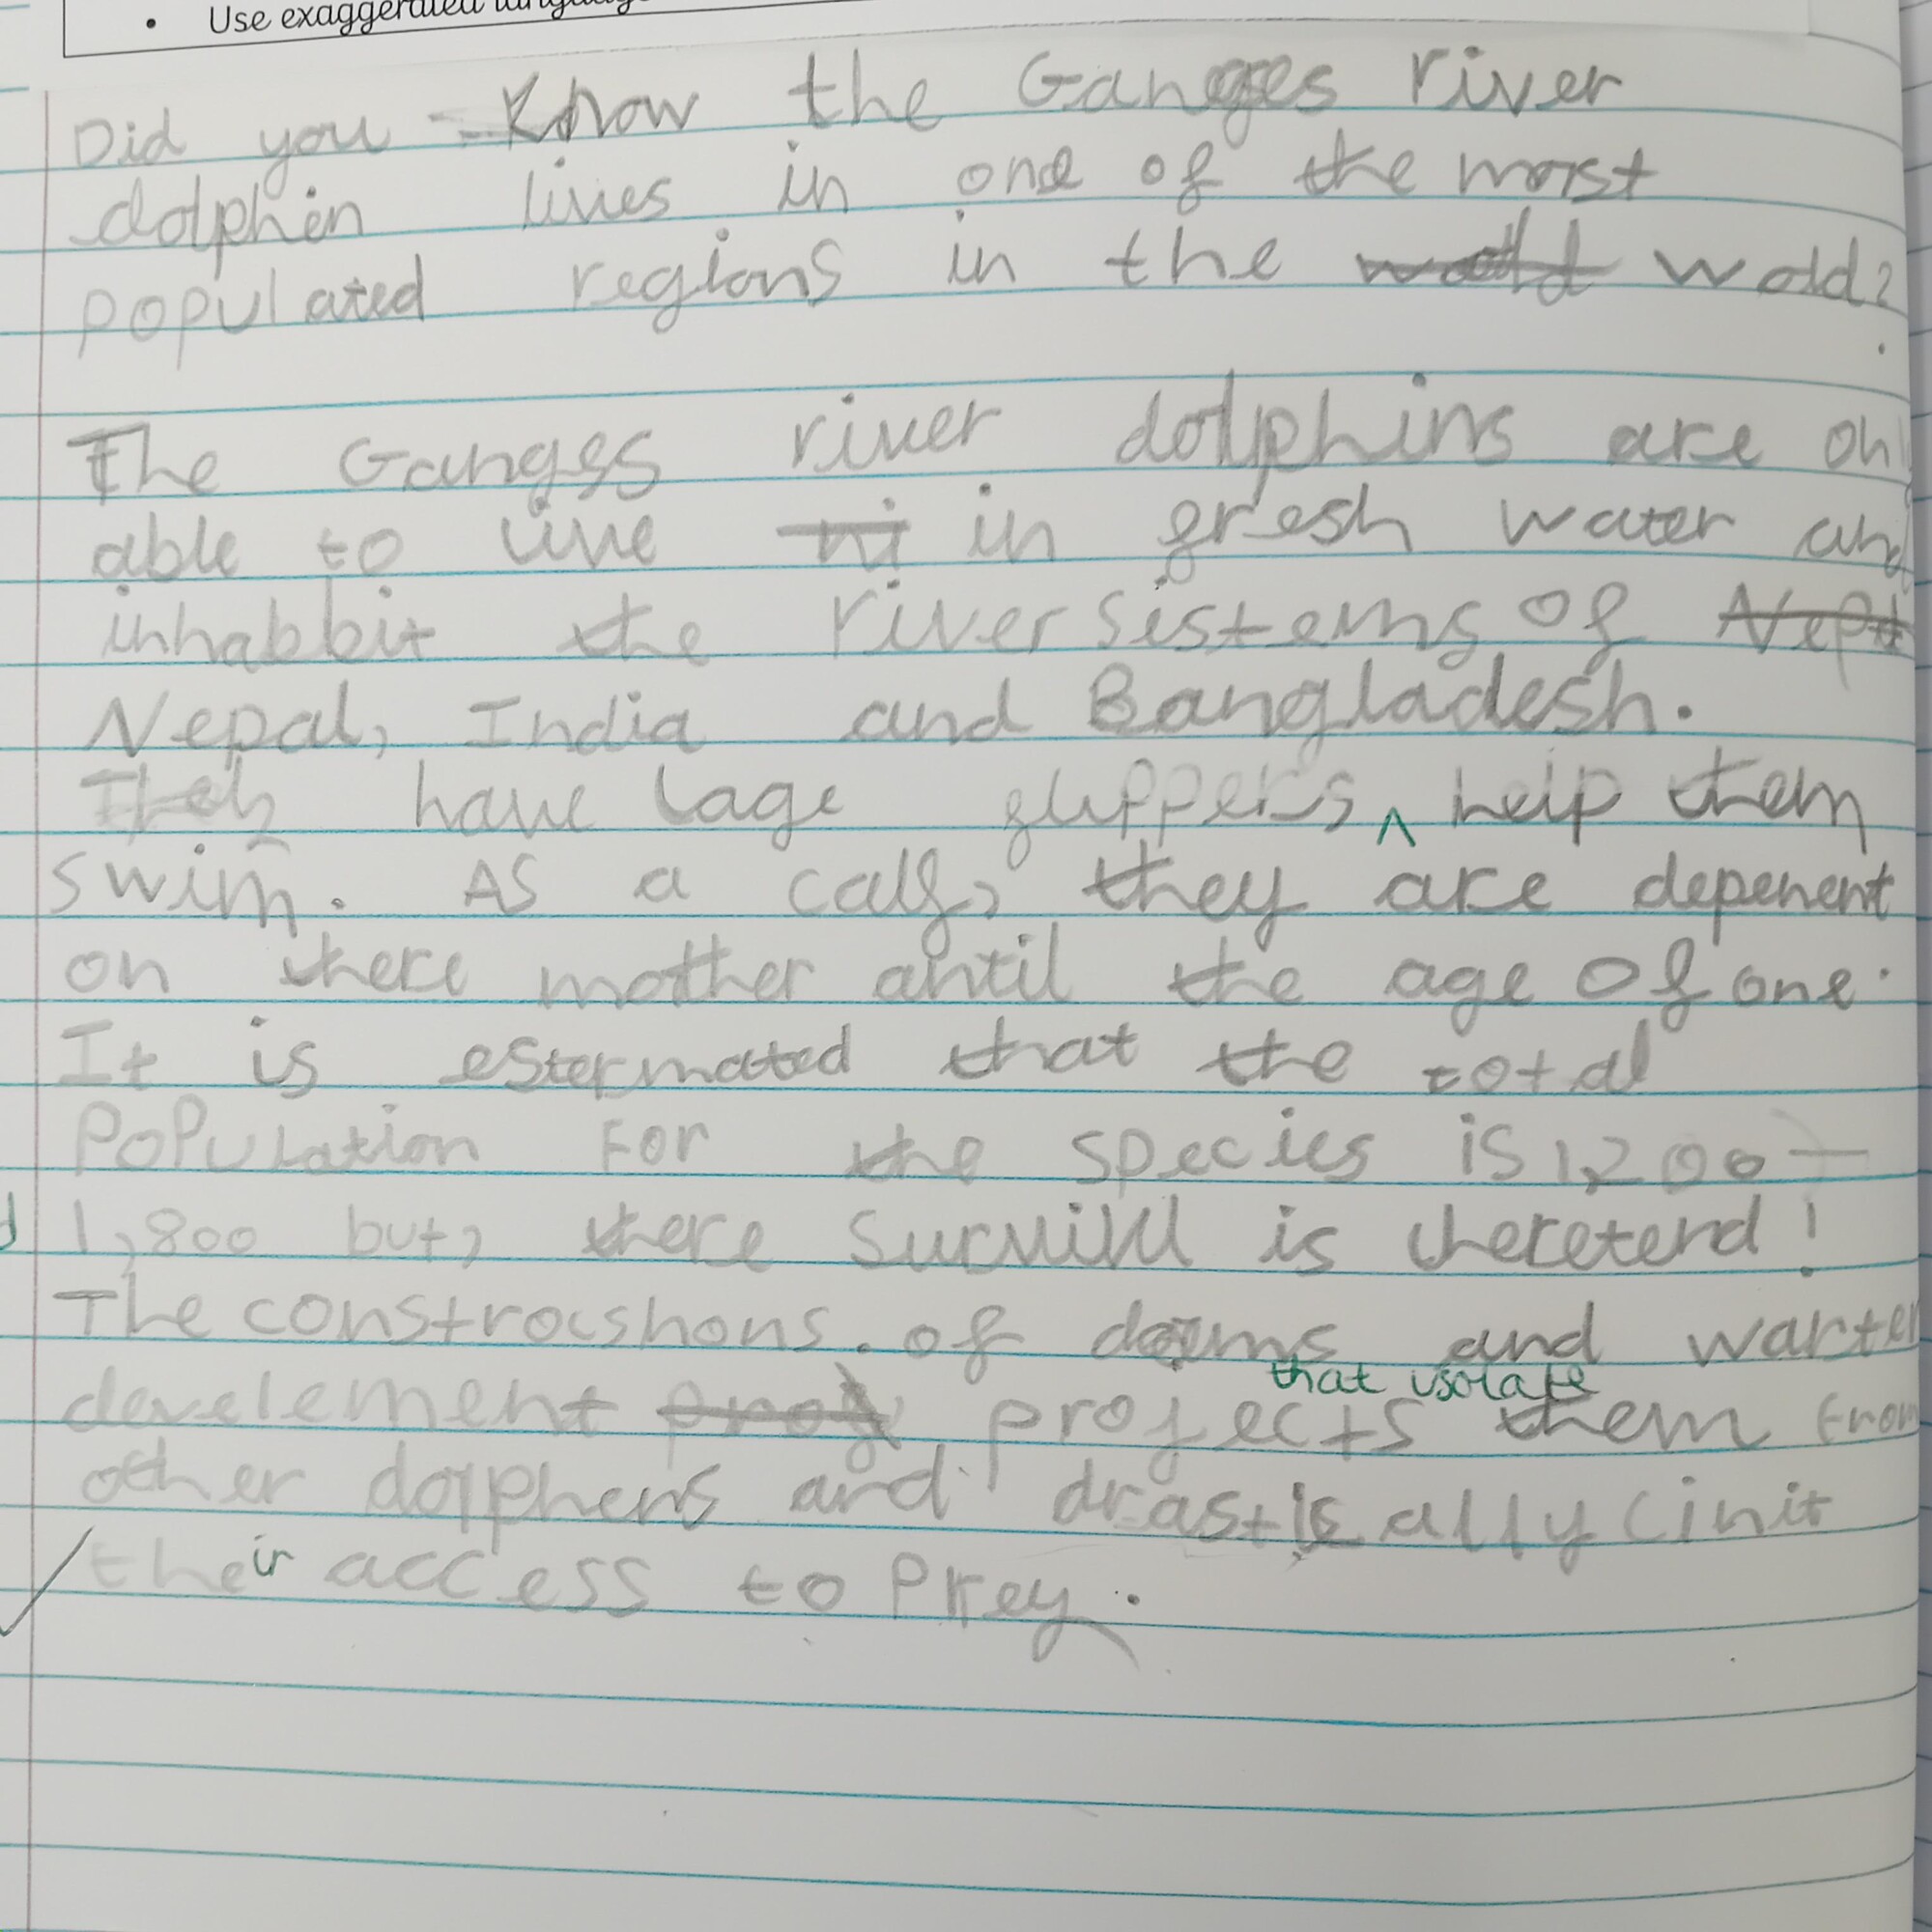 • Use exaggerated language
Did you know the Ganges river
dolphin lives in one of the most
populated regions in the wold?
The Ganges river dolphins are on
able to live in fresh water and
inhabbit the river sistems of
Nepal, India and Bangladesh.
They have lage flippers ^ help them
swim. As a calf, they are depenent
on there mother antil the age of one.
It is estermated that the total
Population For the species is 1,200 –
1,800 but, there survivul is thereterd!
The constrocshons. of dams and warter
that isolate
develement projects them from
other dolphens and drastically limit
their access to Prey.